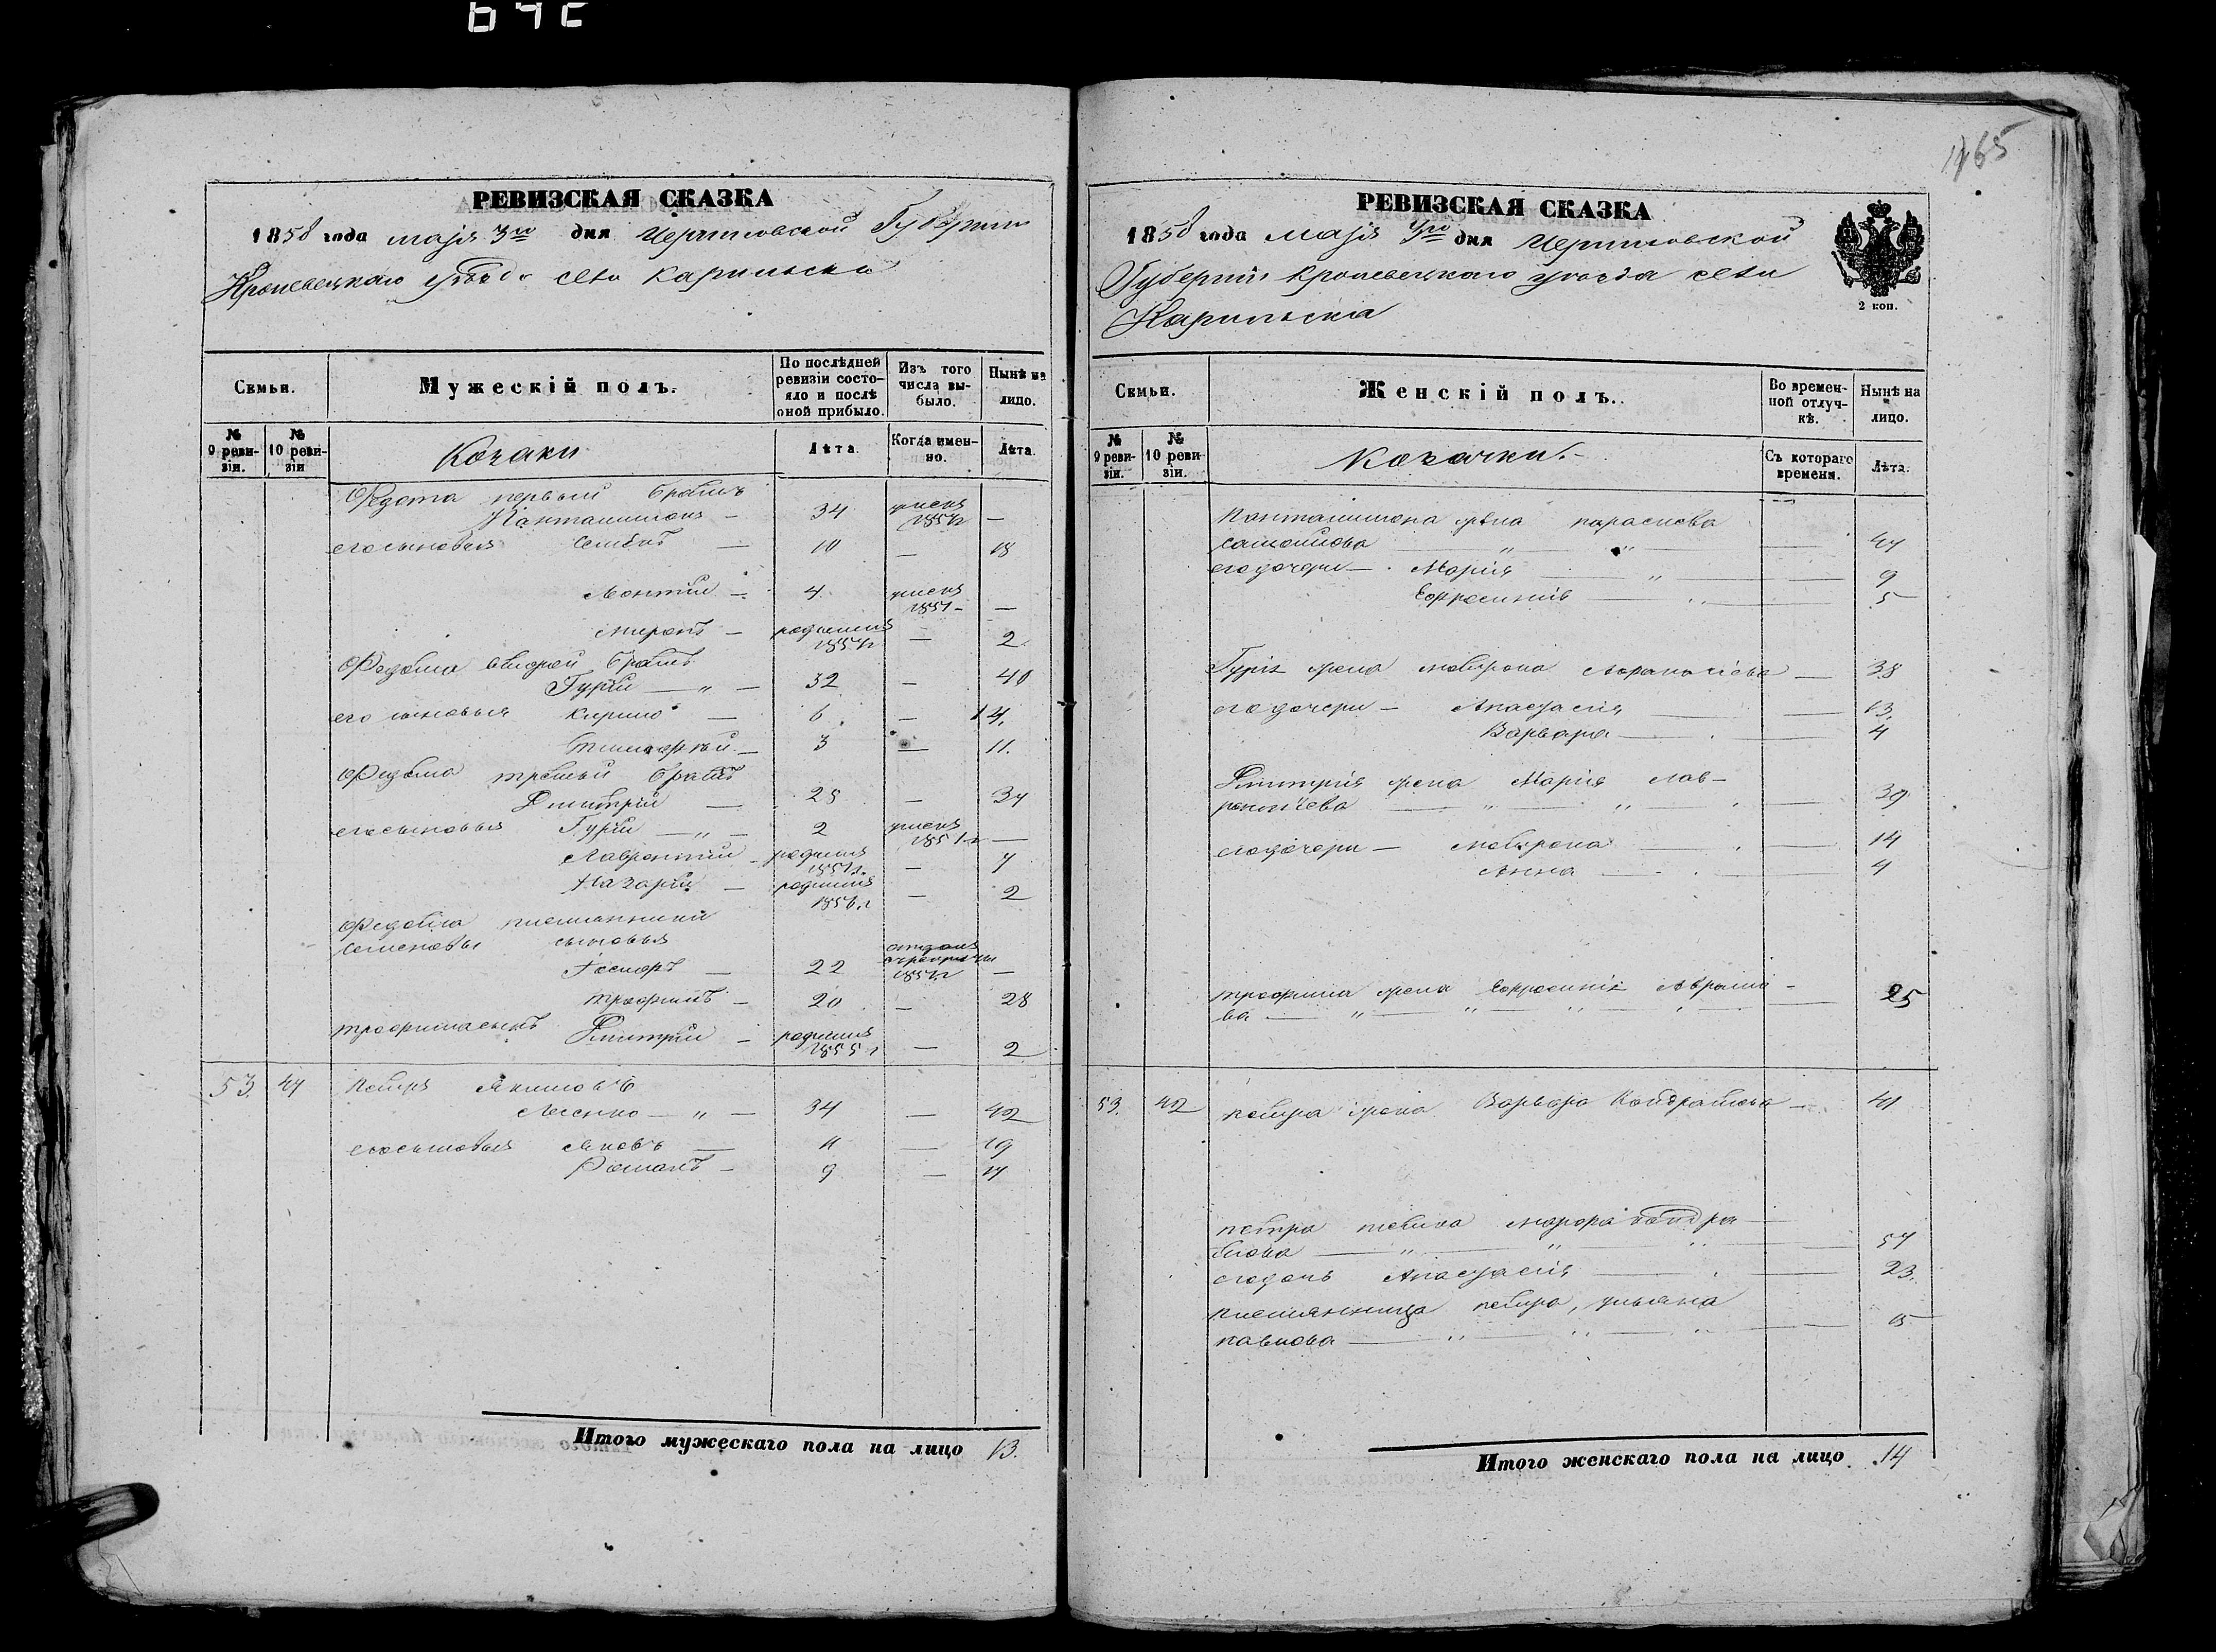 РЕВИЗСКАЯ СКАЗКА
1858 года маія 3го дня Черниговской Губерніи
Кролевецкаго уѣзда села Карильска
Семьи.
Мужескій полъ.
По послѣдней ревизіи состояло и послѣ оной прибыло.
Изъ того числа выбыло.
Нынѣ на лицо.
№ 9 ревизіи.
№ 10 ревизіи
Козаки
Лѣта.
Когда именно.
Лѣта.
Федота первый братъ
Пантелимонъ — 34 умеръ 1857г —
его сыновья Семенъ — 10 — 18
Леонтій — 4. умеръ 1851 — —
Миронъ — родился — 2.
Федота вторей братъ
Гурій — „ — 32 — 40
его сыновья Кирило — 6. — 14.
Тимофей — 3 — 11.
Федота третій братъ
Дмитрій — 28 — 34
его сыновья Гурій — „ — 2 умеръ 1851г —
Лаврентій — родился 1851г. — 7
Назарій — родился 1856.г — 2
Федота племянники
Семеновы сыновья
22 отданъ —
Трофимъ — 20 — 28
Трофима сынъ Дмитрій — родился 1855 г — 2
53. 47 Петръ Якимовъ
— „ — 34 — 42
его сыновья Яковъ — 11 — 19
Романъ — 9 — 17
Итого мужескаго пола на лицо 13.
165
РЕВИЗСКАЯ СКАЗКА
1858 года маія 3го дня Черниговской
Губерніи Кролевецкаго уѣзда села
Карильска
2 коп.
Семьи.
Женскій полъ.
Во временной отлучкѣ.
Нынѣ на лицо.
№ 9 ревизіи.
№ 10 ревизіи.
Козачки.
Съ котораго времени.
Лѣта.
Пантелимона жена Параскева
Самойлова — „ — „ — 44
его дочери — Марія — „ — 9
Ефросинія — 5
Гурія жена — 38
его дочери — Анастасія — 13.
Варвара — 4
Дмитрія жена Марія Лав-
— „ — „ — 39
его дочери — — 14
Анна — 4
Трофима жена Ефросинія Абрамо-
ва — „ — „ — 25
53. 42 Петра жена Варвара Кондратова — 41
Петра Кондра-
това — „ — „ — „ — 57
его дочь Анастасія — 23.
племянница Петра, Ульяна
Павлова — „ — „ — „ — 15
Итого женскаго пола на лицо. 14